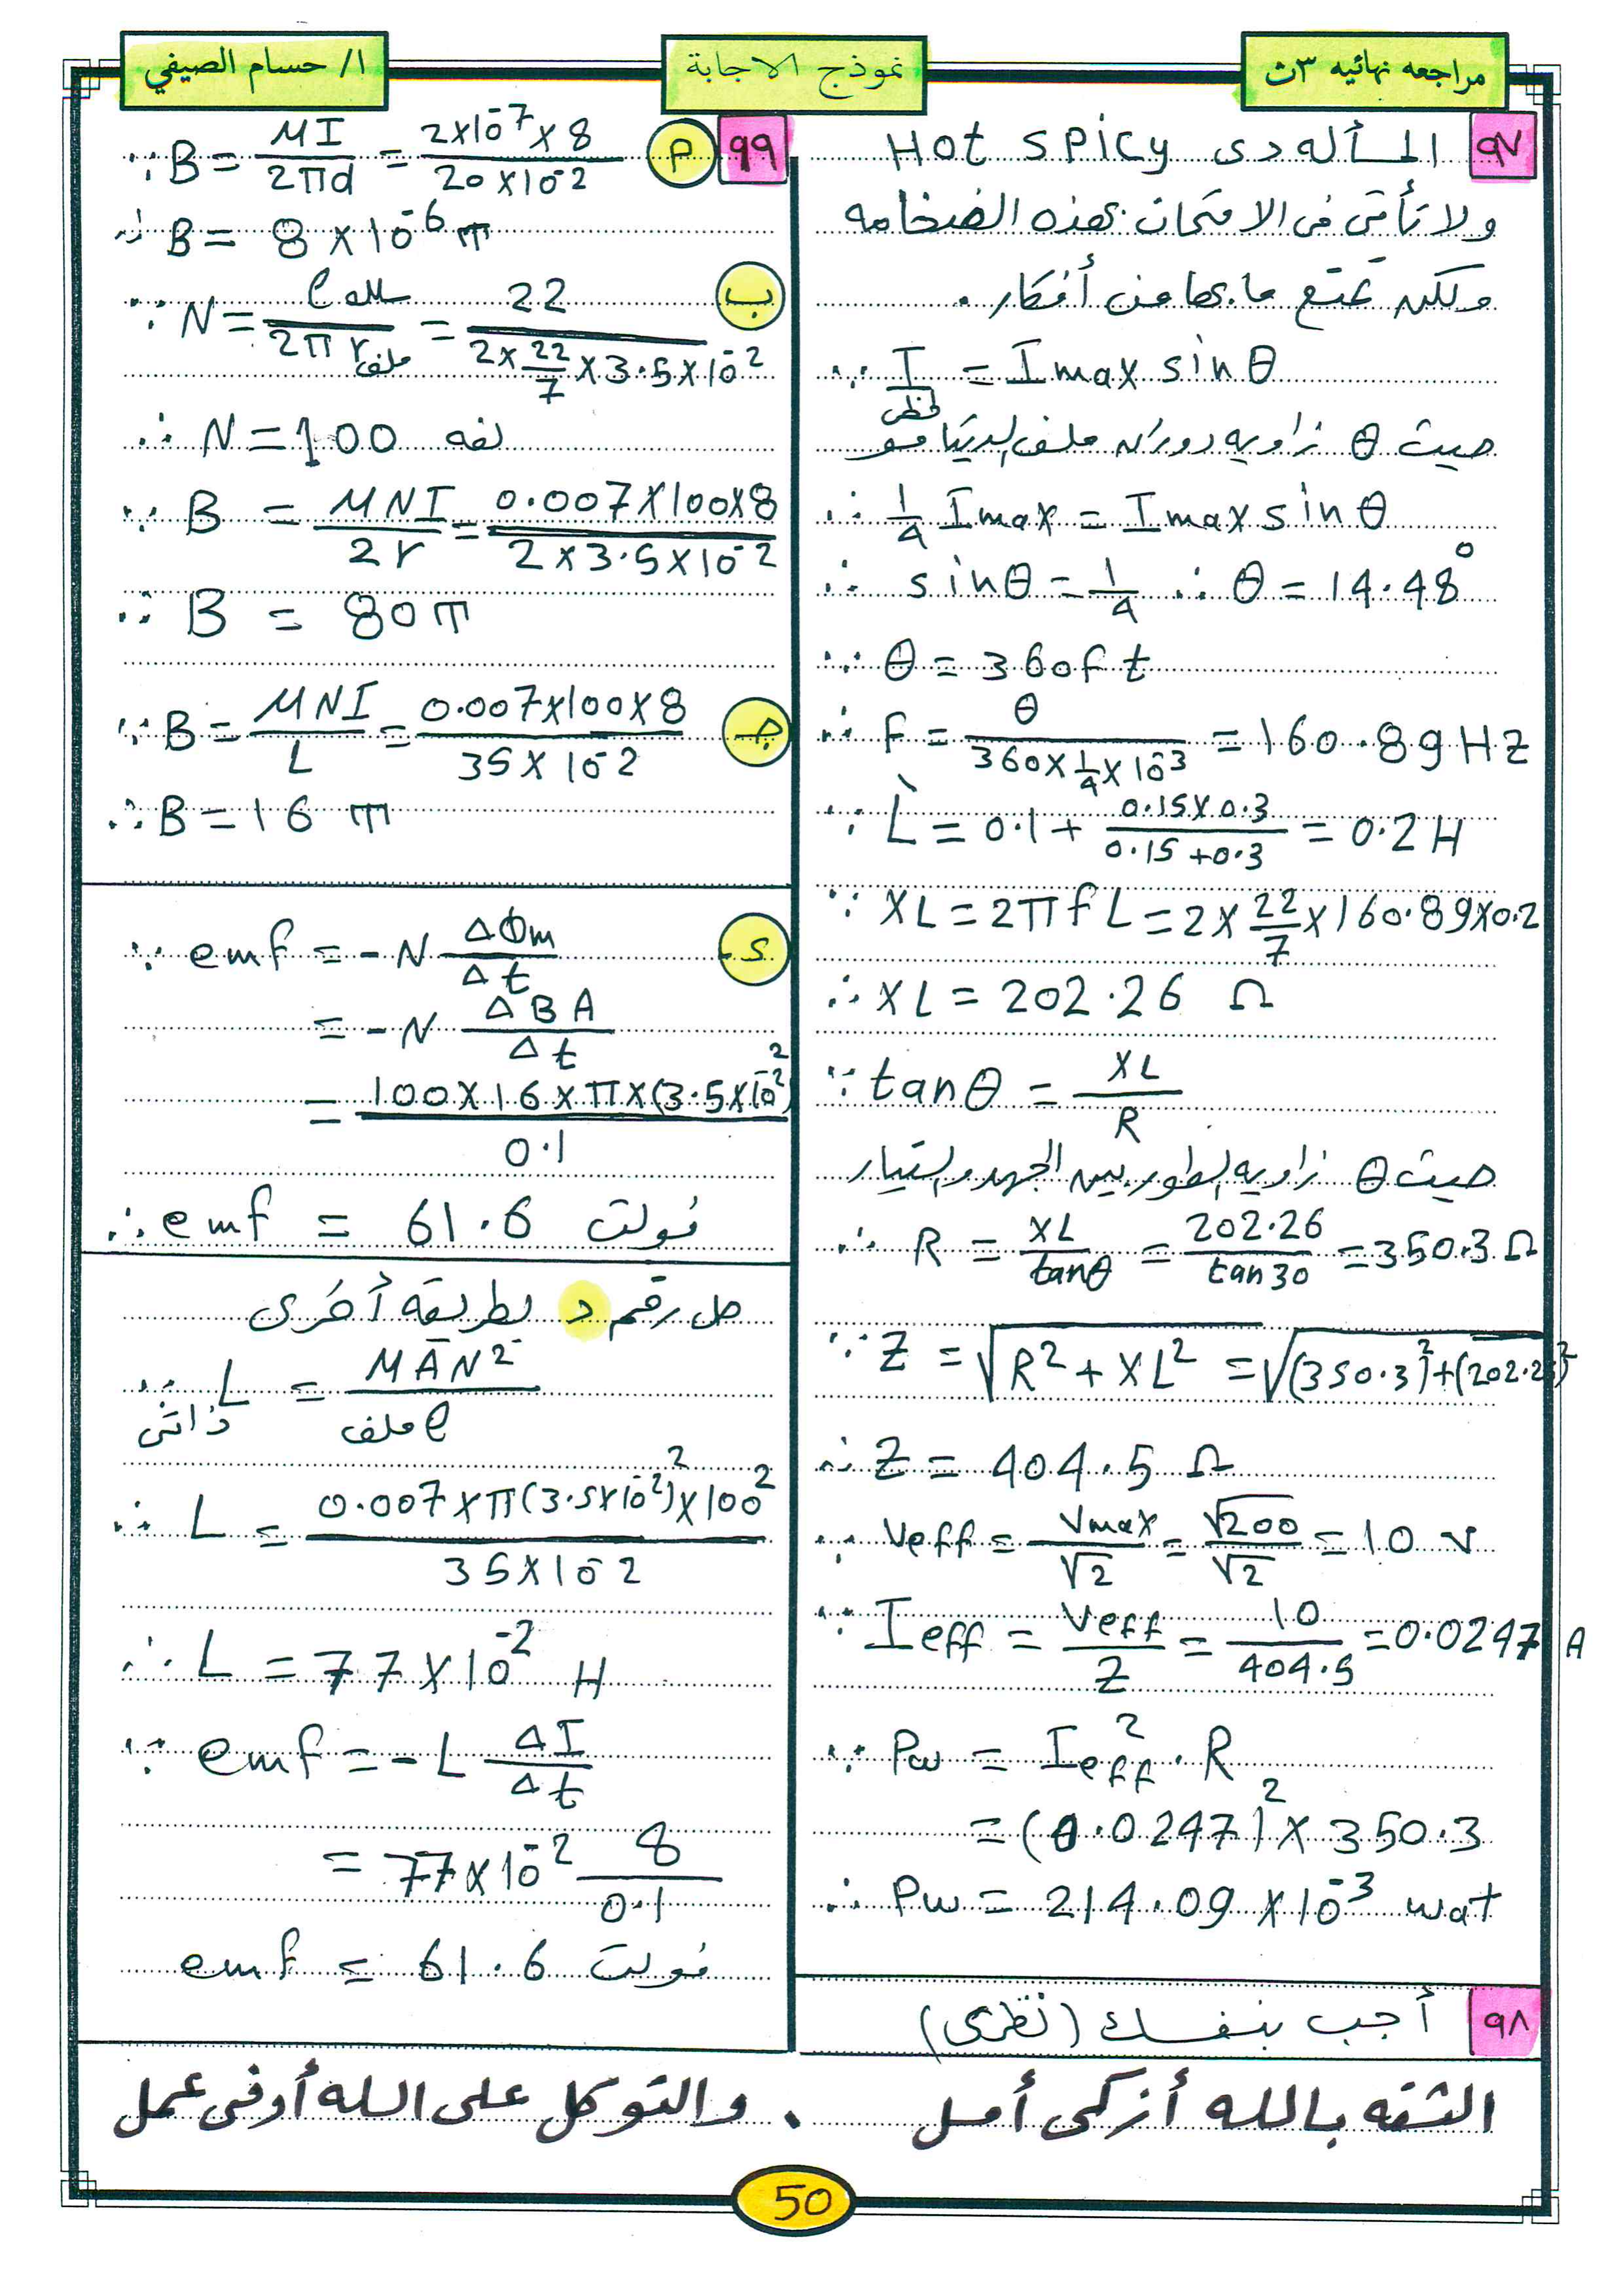 مراجعه نهائيه ٣ث
نموذج الاجابة
ا/ حسام الصيفي
٩٧ المسأله دى Hot spicy
ولا تأتى فى الامتحان بهذه الضخامه
ولكنه تمتع ما بها من أفكار .
∵ I لحظى = Imax sin θ
حيث θ زاويه دوران ملف الدينامو
∴ 1/4 Imax = Imax sin θ
∴ sin θ = 1/4 ∴ θ = 14.48°
∵ θ = 360 f t
∴ F = θ / (360 × 1/4 × 10⁻³) = 160.89 Hz
∵ L̀ = 0.1 + (0.15 × 0.3) / (0.15 + 0.3) = 0.2 H
∵ XL = 2π f L = 2 × 22/7 × 160.89 × 0.2
∴ XL = 202.26 Ω
∵ tan θ = XL / R
حيث θ زاويه الطور بين الجهد والتيار
∴ R = XL / tanθ = 202.26 / tan30 = 350.3 Ω
∵ Z = √(R² + XL²) = √((350.3)² + (202.26)²)
∴ Z = 404.5 Ω
∵ Veff = Vmax / √2 = √200 / √2 = 10 v
∵ Ieff = Veff / Z = 10 / 404.5 = 0.0247 A
∵ Pw = Ieff² . R
= (0.0247)² × 350.3
∴ Pw = 214.09 × 10⁻³ wat
٩٨ أجب بنفسك (نظرى)
٩٩ م ∵ B = MI / 2πd = (2×10⁻⁷ × 8) / (20 × 10⁻²)
∴ B = 8 × 10⁻⁶ T
ب ∵ N = ℓ سلك / 2π r ملف = 22 / (2 × 22/7 × 3.5 × 10⁻²)
∴ N = 100 لفه
∵ B = MNI / 2r = (0.007 × 100 × 8) / (2 × 3.5 × 10⁻²)
∴ B = 80 T
جـ ∵ B = MNI / L = (0.007 × 100 × 8) / (35 × 10⁻²)
∴ B = 16 T
د ∵ emf = -N ΔΦm / Δt
= -N ΔBA / Δt
= (100 × 16 × π × (3.5 × 10⁻²)²) / 0.1
∴ emf = 61.6 فولت
حل رقم د بطريقه أخرى
∵ L ذاتى = MAN² / ℓ ملف
∴ L = (0.007 × π (3.5×10⁻²)² × 100²) / (35 × 10⁻²)
∴ L = 77 × 10⁻² H
∵ emf = -L ΔI / Δt
= 77 × 10⁻² 8 / 0.1
emf = 61.6 فولت
الثقه بالله أزكى أمل . والتوكل على الله أوفى عمل
50